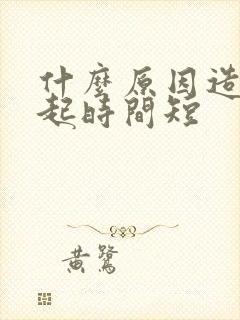 什麼原因造
起時間短
黃鷺